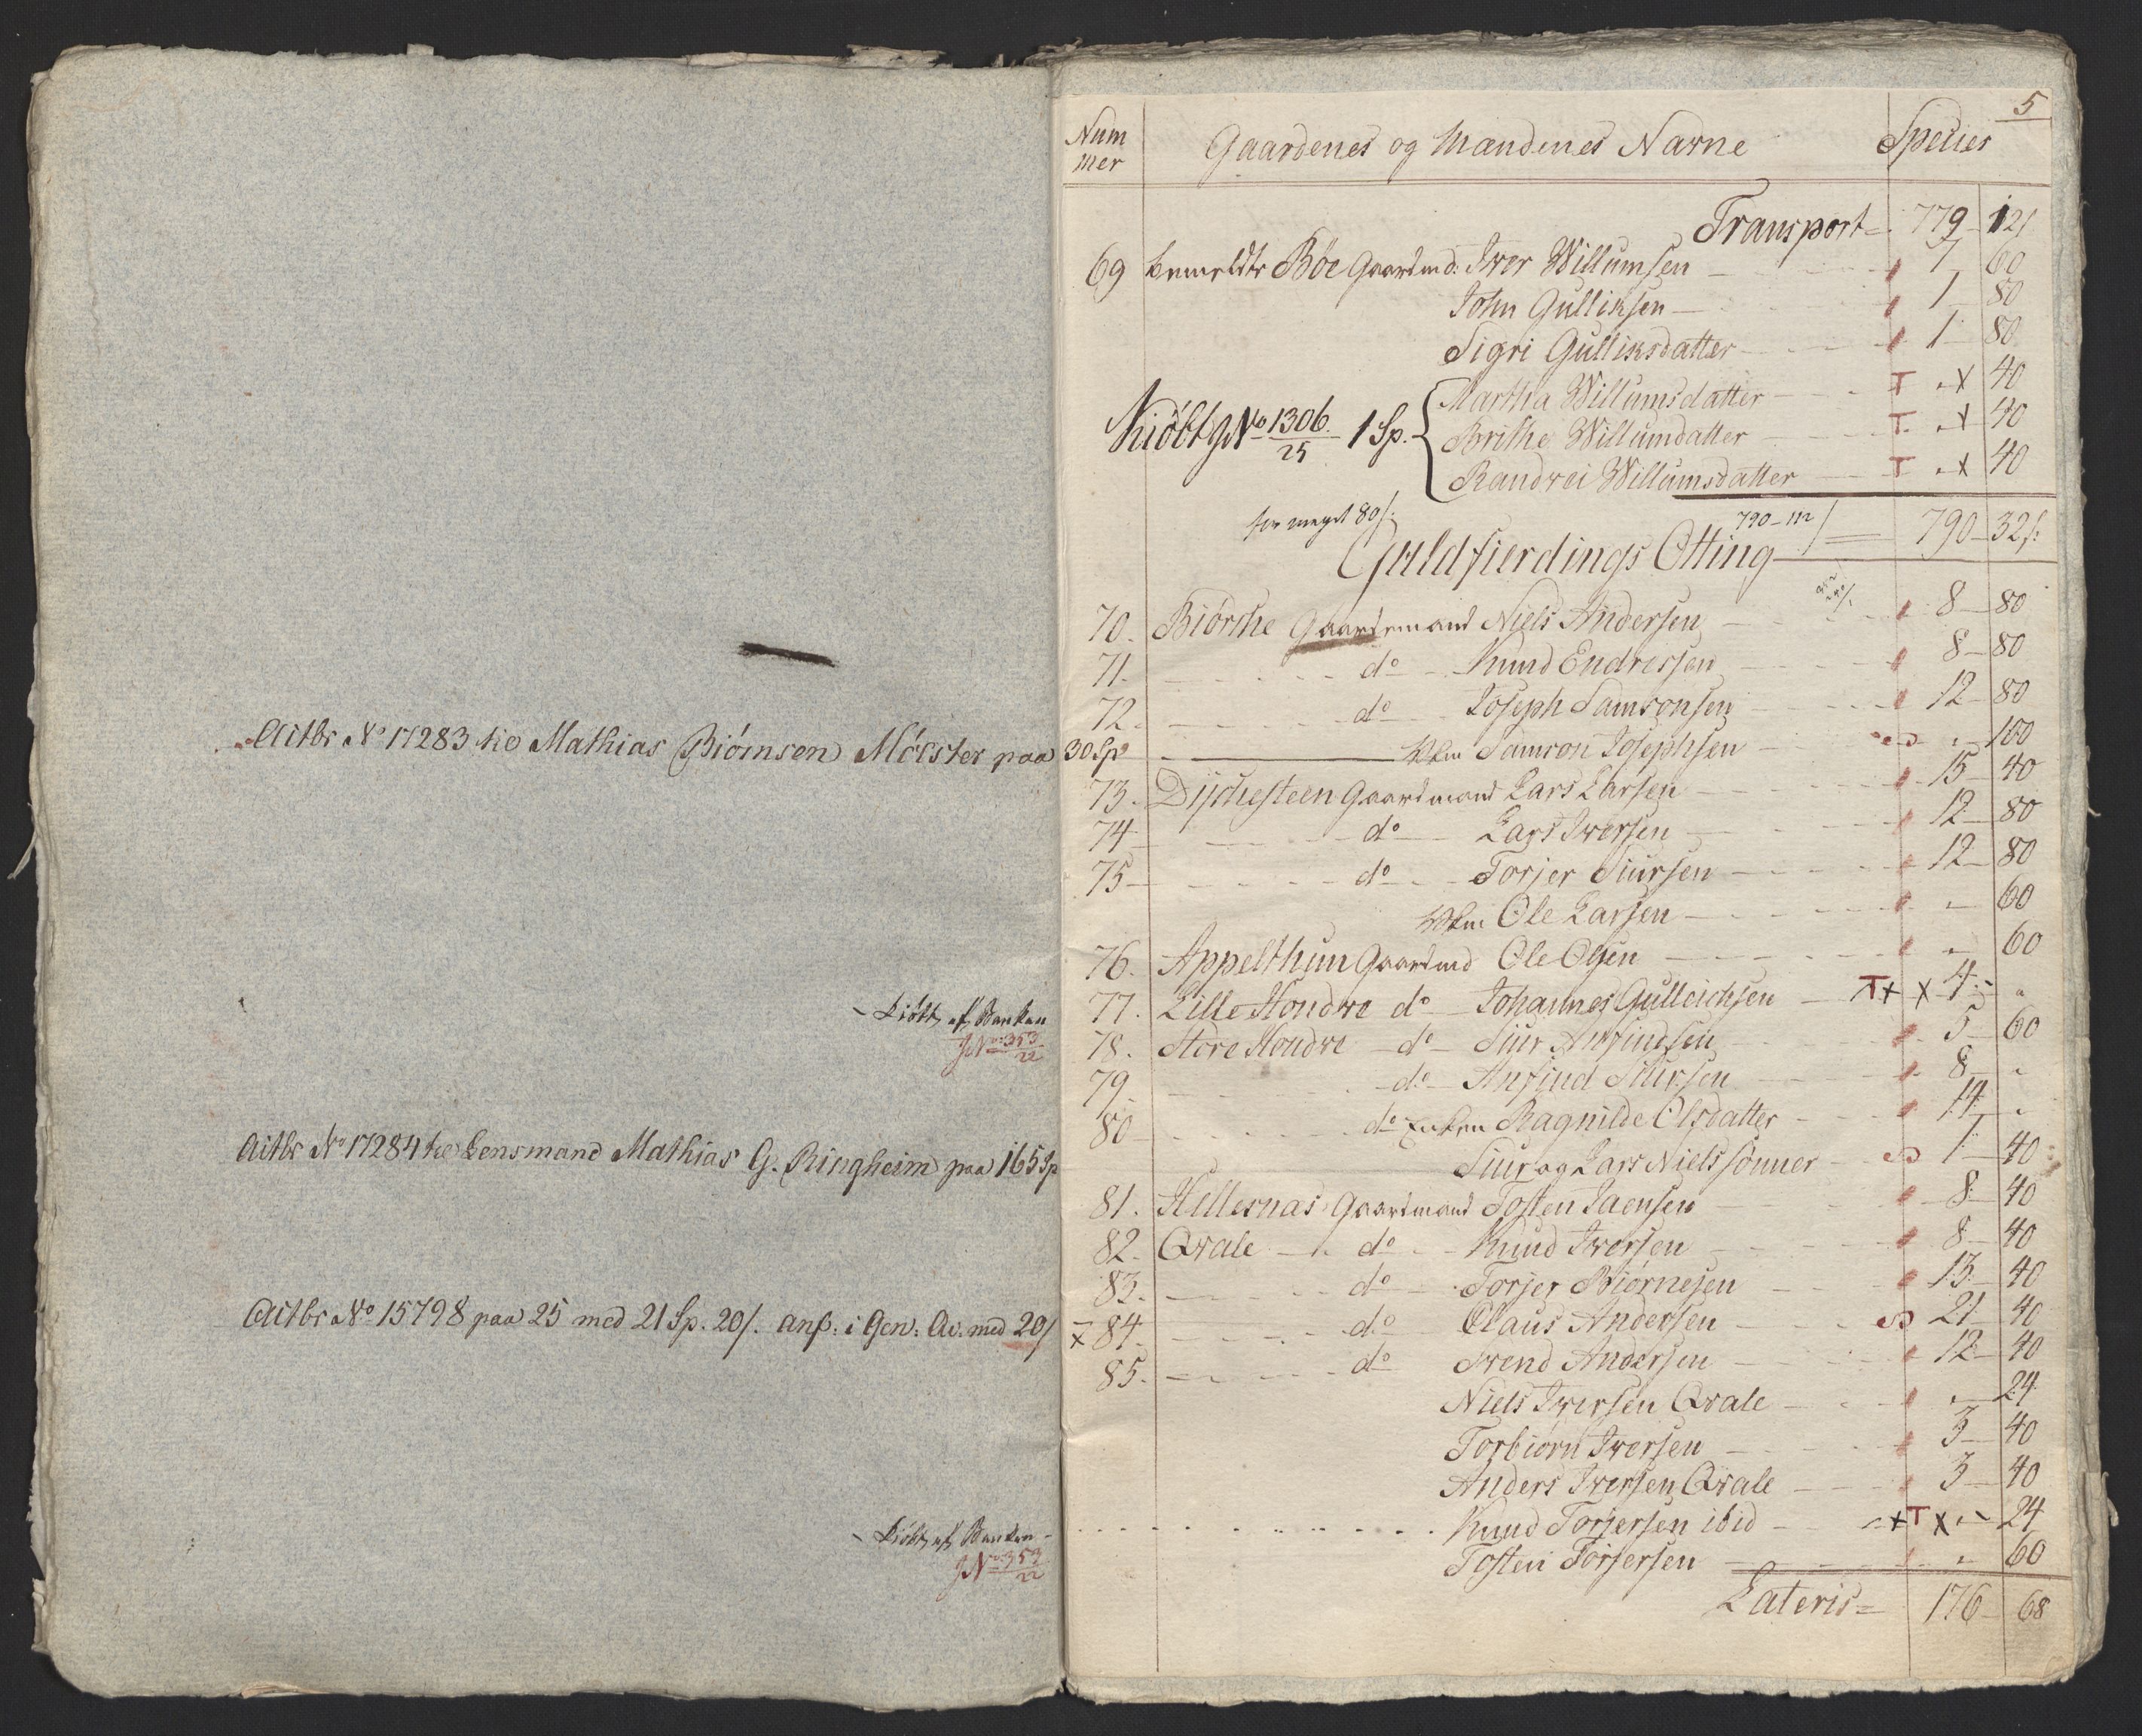 Actbr No 17283 til Mathias Biørnsen Mölster paa 30 Sp
Kiöbt af Banken
J No 353/22
Actbr No 17284 til Lensmand Mathias G. Ringheim paa 165 Sp
Actbr No 15798 paa 25 med 21 Sp. 20 s. anf: i Gen: Qv. med 20 s
Kiöbt af Banken
J No 353/22
5
Num mer Gaardenes og Mændenes Navne Species
Transport = 779 - 12 s
69 bemeldte Böe Gaardmd: Iver Willumsen 1 60
John Gulliksen 1 80
Sigri Gulliksdatter 1 80
Martha Willumsdatter T x 40
Kiöbt J No 1306/25 1 Sp. Brithe Willumdatter T x 40
Randvei Willumsdatter T x 40
for meget 80 s. 790 - 112 s 790 - 32 s.
Guldfierdings Otting
70. Biørke Gaardemand Niels Andersen 8 - 80
71. do Knud Endresen 8 - 80
72. do Joseph Samsonsen 12 - 80
Samson Josephsen 100
73. Dÿchesteen Gaardmand Lars Larsen 15 - 40
74 do Lars Iversen 12 - 80
75 do Torjer Siursen 12 - 80
Ole Larsen 60
76. Appelthun Gaardmd Ole Olsen 60
77. Lille Hondve do Johannes Gulleichsen T x x 4 -
78. Store Hondve do Siur Anfindsen 5 - 60
79 do Anfind Siursen 8
80 do Enken Ragnilde Olsdatter 14
Siur og Lars Niels sönner 1 - 40
81. Hellesnas Gaardmand Tosten Jaensen 8 - 40
82. Qvale do Knud Iversen 8 - 40
83. do Torjer Biørnesen 13 - 40
x 84 do Claus Andersen 21 - 40
85. do Svend Andersen 12 - 40
Niels Iversen Qvale 24
Torbiørn Iversen 3 - 40
Anders Iversen Qvale 3 - 40
Knud Torjersen ibid x T x 24
Tosten Torjersen 60
Lateris = 176 - 68